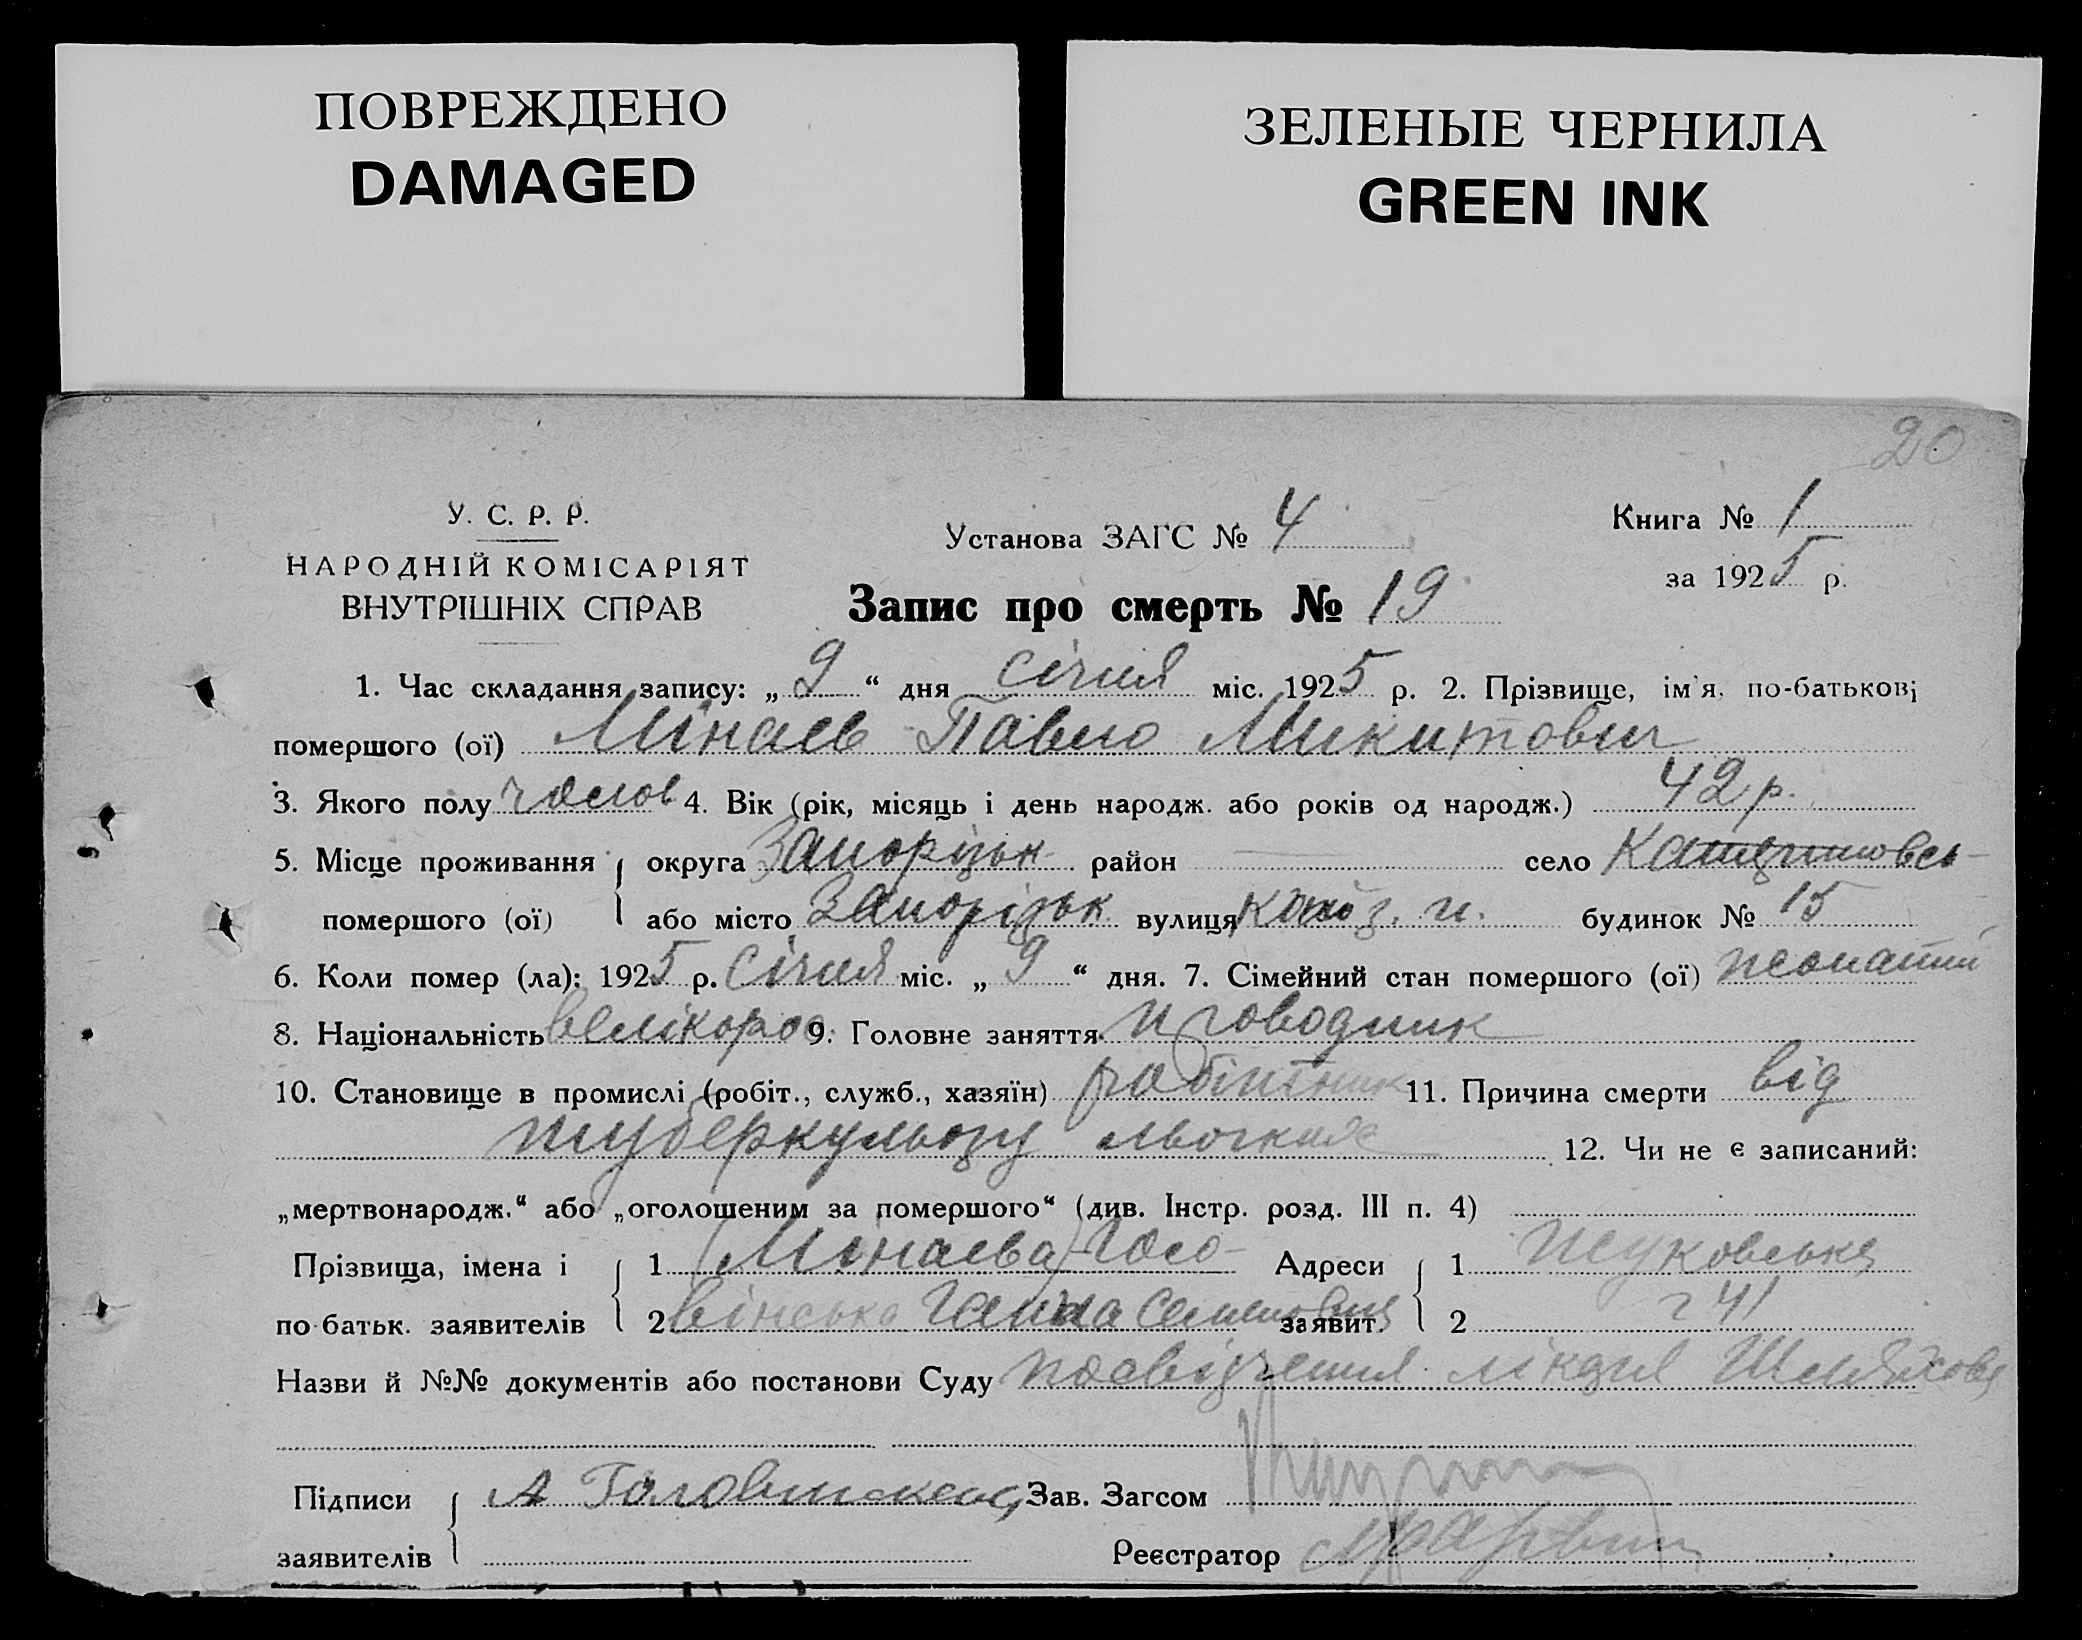 ПОВРЕЖДЕНО
DAMAGED
ЗЕЛЕНЫЕ ЧЕРНИЛА
GREEN INK
20
У. С. Р. Р.
НАРОДНІЙ КОМІСАРІЯТ
ВНУТРІШНІХ СПРАВ
Установа ЗАГС № 4
Книга № 1
за 1925 р.
Запис про смерть № 19
1. Час складання запису: „ 9 “ дня січня міс. 1925 р. 2. Прізвище, ім'я, по-батькові
помершого (ої) Мінаєв Павло Микитович
3. Якого полу чолов 4. Вік (рік, місяць і день народж. або років од народж.) 42 р.
5. Місце проживання округа Запорізьк район — село
помершого (ої) або місто Запорізьк вулиця будинок № 15
6. Коли помер (ла): 1925 р. Січня міс. „ 9 “ дня. 7. Сімейний стан помершого (ої) жонатий
8. Національність велікорос 9. Головне заняття проводник
10. Становище в промислі (робіт., служб., хазяїн) робітник 11. Причина смерти від
туберкульозу 12. Чи не є записаний:
„мертвонародж.“ або „оголошеним за помершого“ (див. Інстр. розд. III п. 4)
Прізвища, імена і 1 (Мінаєва) Голо- Адреси 1 Жуковська
по-батьк. заявителів 2 вінська Ганна Семеновна заявит. 2 41
Назви й №№ документів або постанови Суду посвідчення лікаря
Підписи А Головинская Зав. Загсом
заявителів Реєстратор